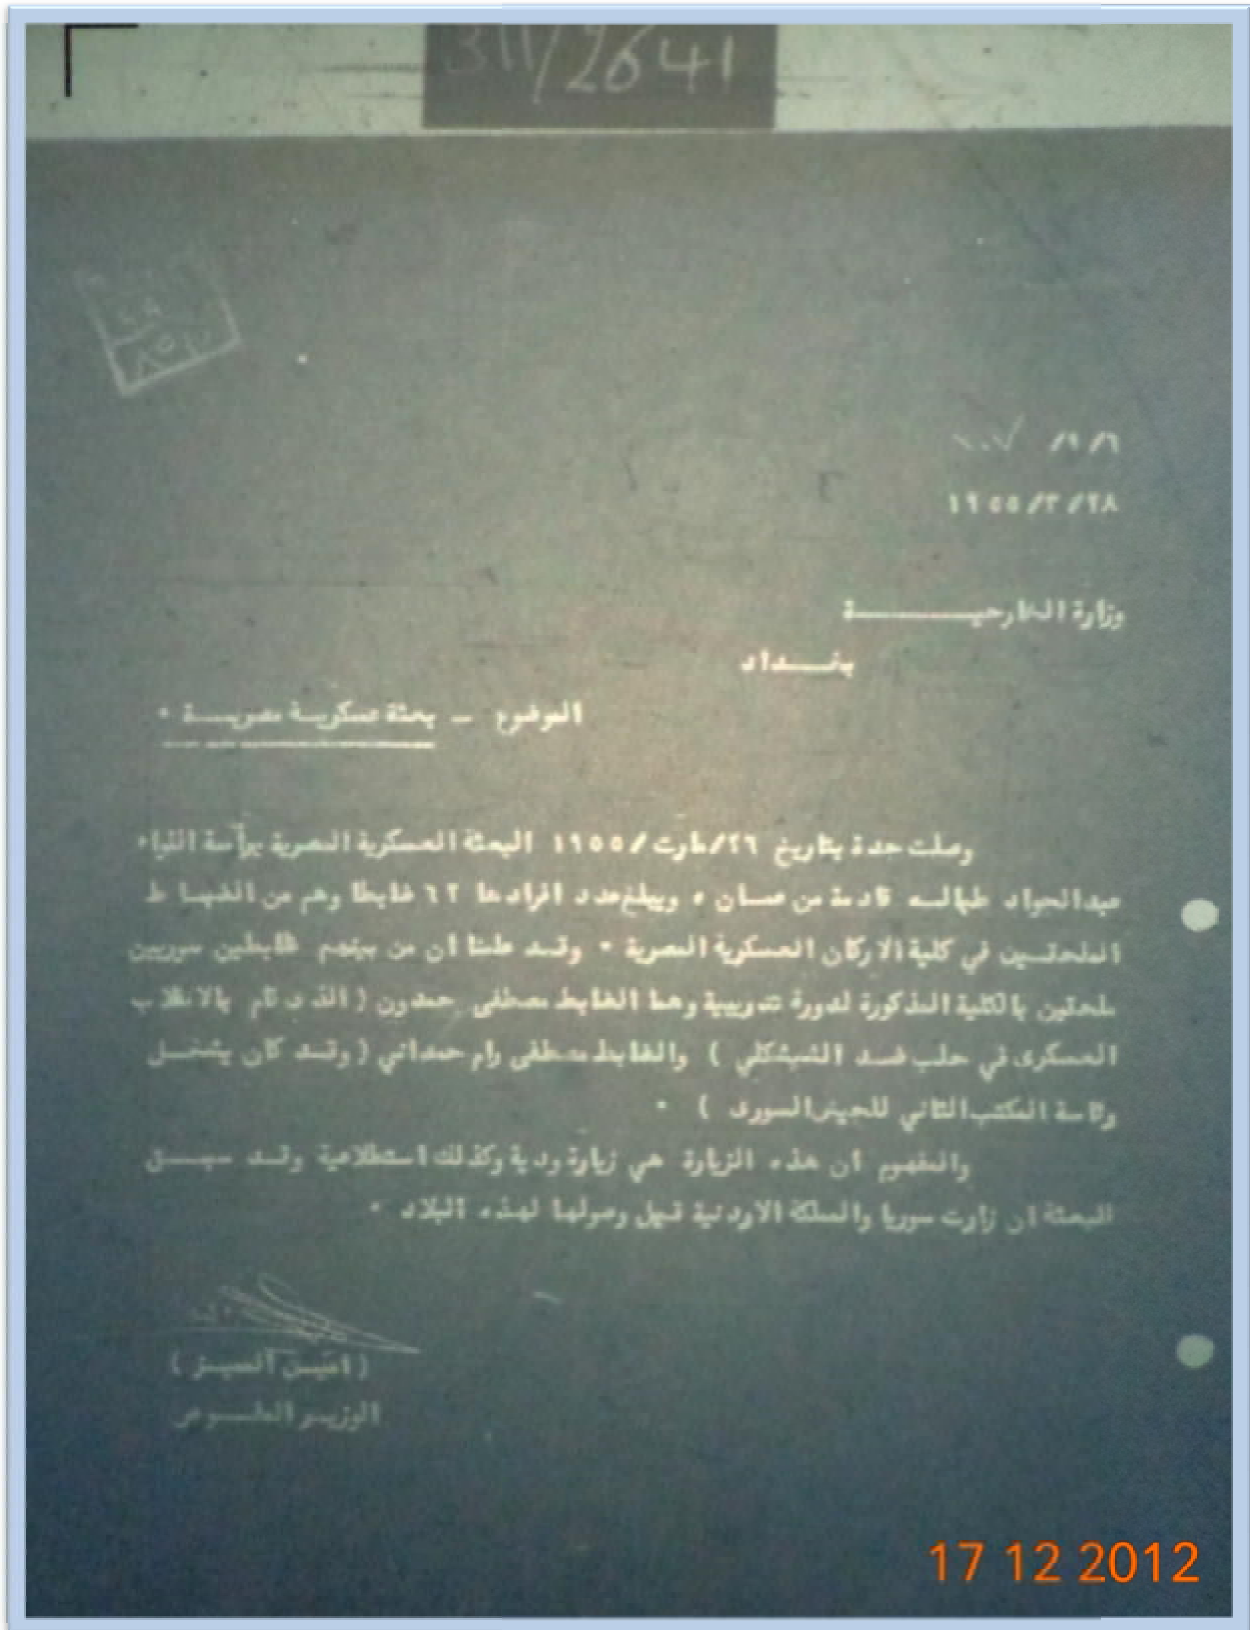 311/2641
٦/٩/
١٩٥٥/٣/٢٨
وزارة الخارجيـــــــة
بغـــداد
الموضوع – بعثة عسكريـة مصريـــة .
وصلت جدة بتاريخ ٢٦/مارت/١٩٥٥ البعثة العسكرية المصرية برآسة اللواء
عبدالجواد طبالـه قادمة من عمـان ، ويبلغ عدد افرادها ٦٢ ضابطا وهم من الضبـا ط
الملحقـين في كلية الاركان العسكرية المصرية . وقـد علمنا ان من بينهم ضابطين سوريين
ملحقين بالكلية المذكورة لدورة تدريبية وهما الضابط مصطفى حمدون ( الذي قام بالانقلاب
العسكرى في حلب ضـد الشيشكلي ) والضابط مصطفى رام حمداني ( وقـد كان يشغـل
رئاسة المكتب الثاني للجيش السورى ) .
والمفهوم ان هذه الزيارة هي زيارة ودية وكذلك استطلاعية وقـد سبـــق
للبعثة ان زارت سوريا والمملكة الاردنية قبل وصولها لهذه البلاد .
( اميـن المميـز )
الوزيـر المفـــوض
17 12 2012